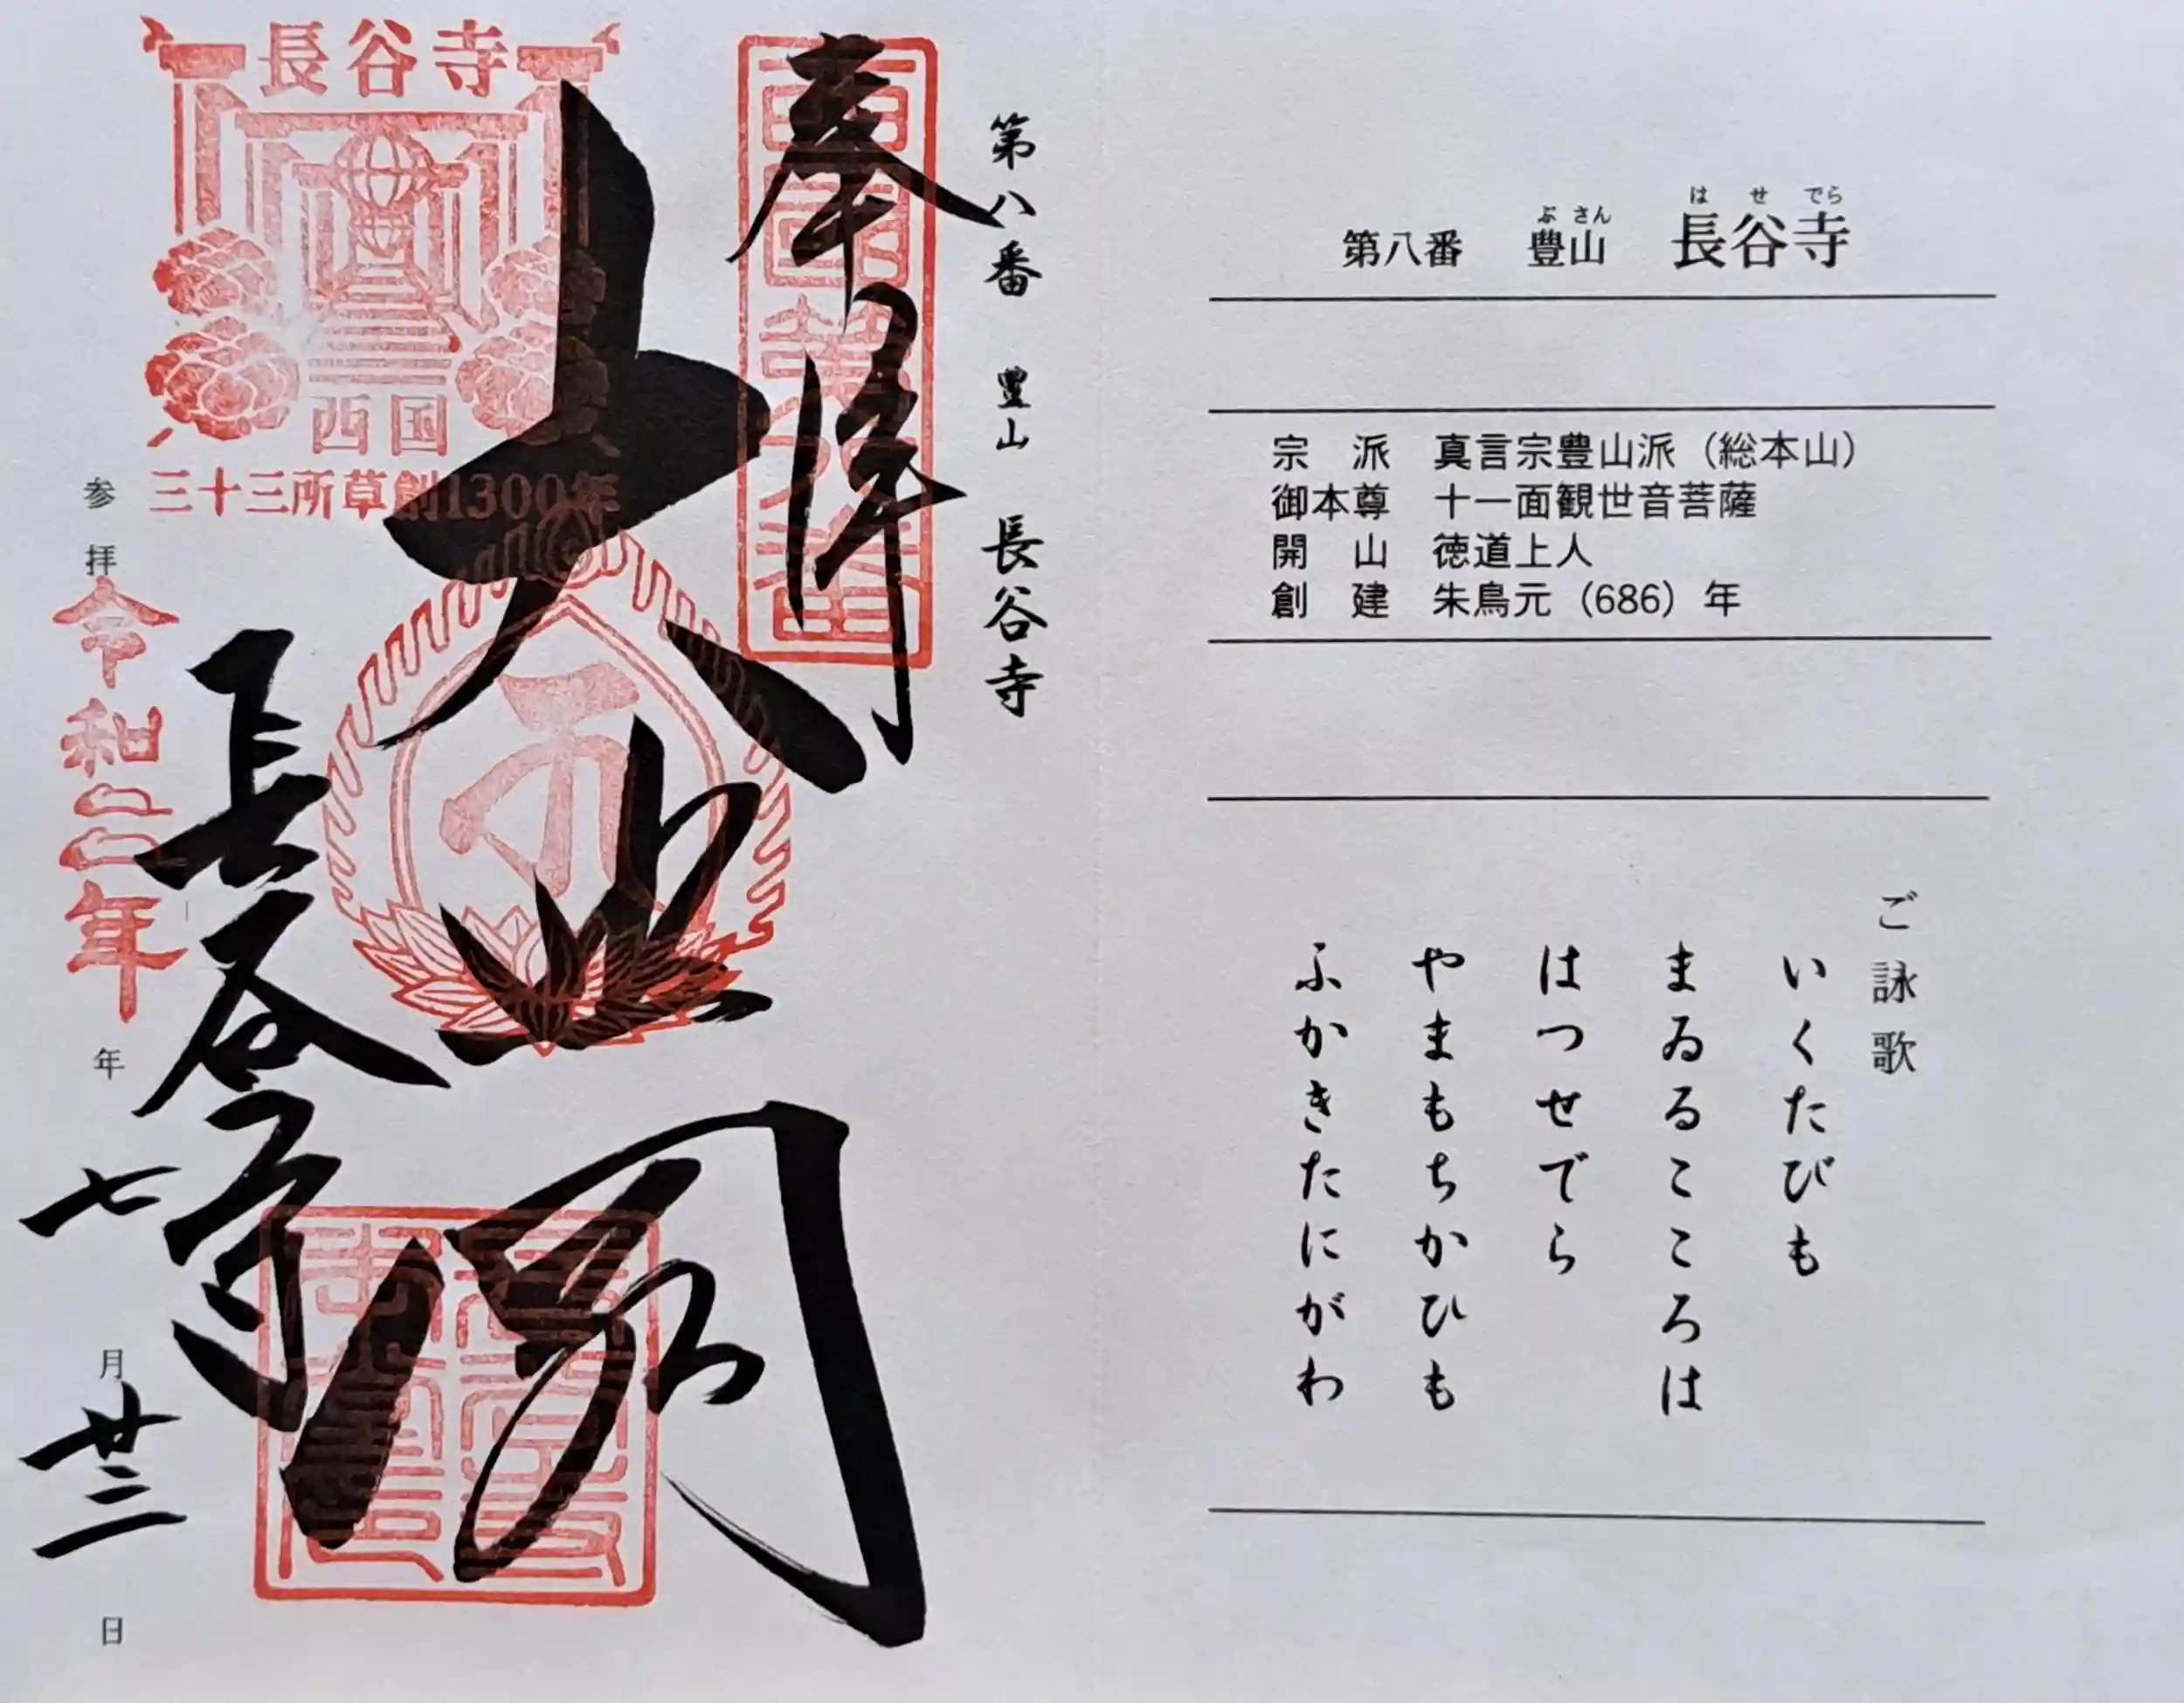 第八番 豊山 長谷寺
は せ でら
ぶ さん
宗 派 真言宗豊山派（総本山）
御本尊 十一面観世音菩薩
開 山 徳道上人
創 建 朱鳥元（686）年
ご詠歌
いくたびも
まゐるこころは
はつせでら
やまもちかひも
ふかきたにがわ
第八番 豊山 長谷寺
奉拝
西國第八番
大悲閣
長谷寺
長谷寺
西国
三十三所草創1300年
参拝 令和二年 年 七 月 廿三 日